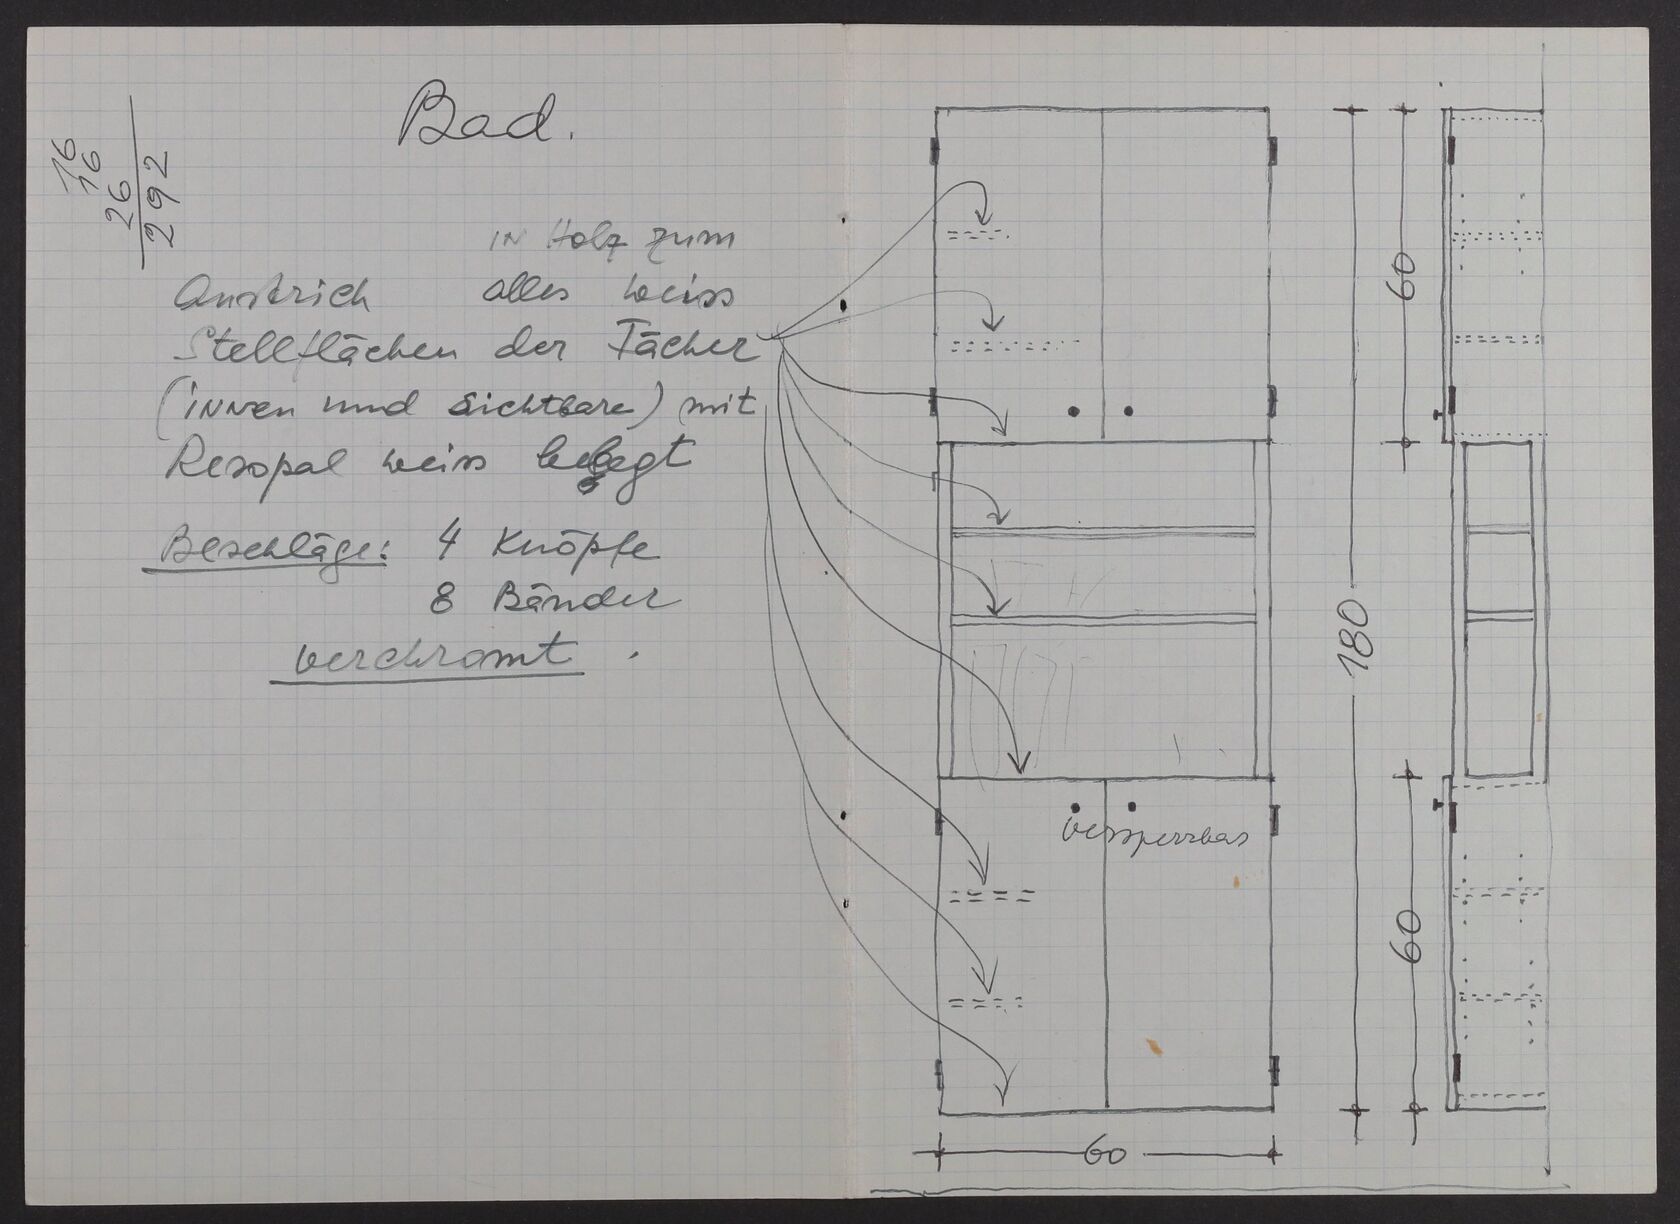 Bad.
16
16
26
292
in Holz zum
Anstrich alles weiss
Stellflächen der Fächer
(innen und sichtbare) mit
Resopal weiss belegt
Beschläge: 4 Knöpfe
8 Bänder
verchromt.
60
180
versperrbar
60
60